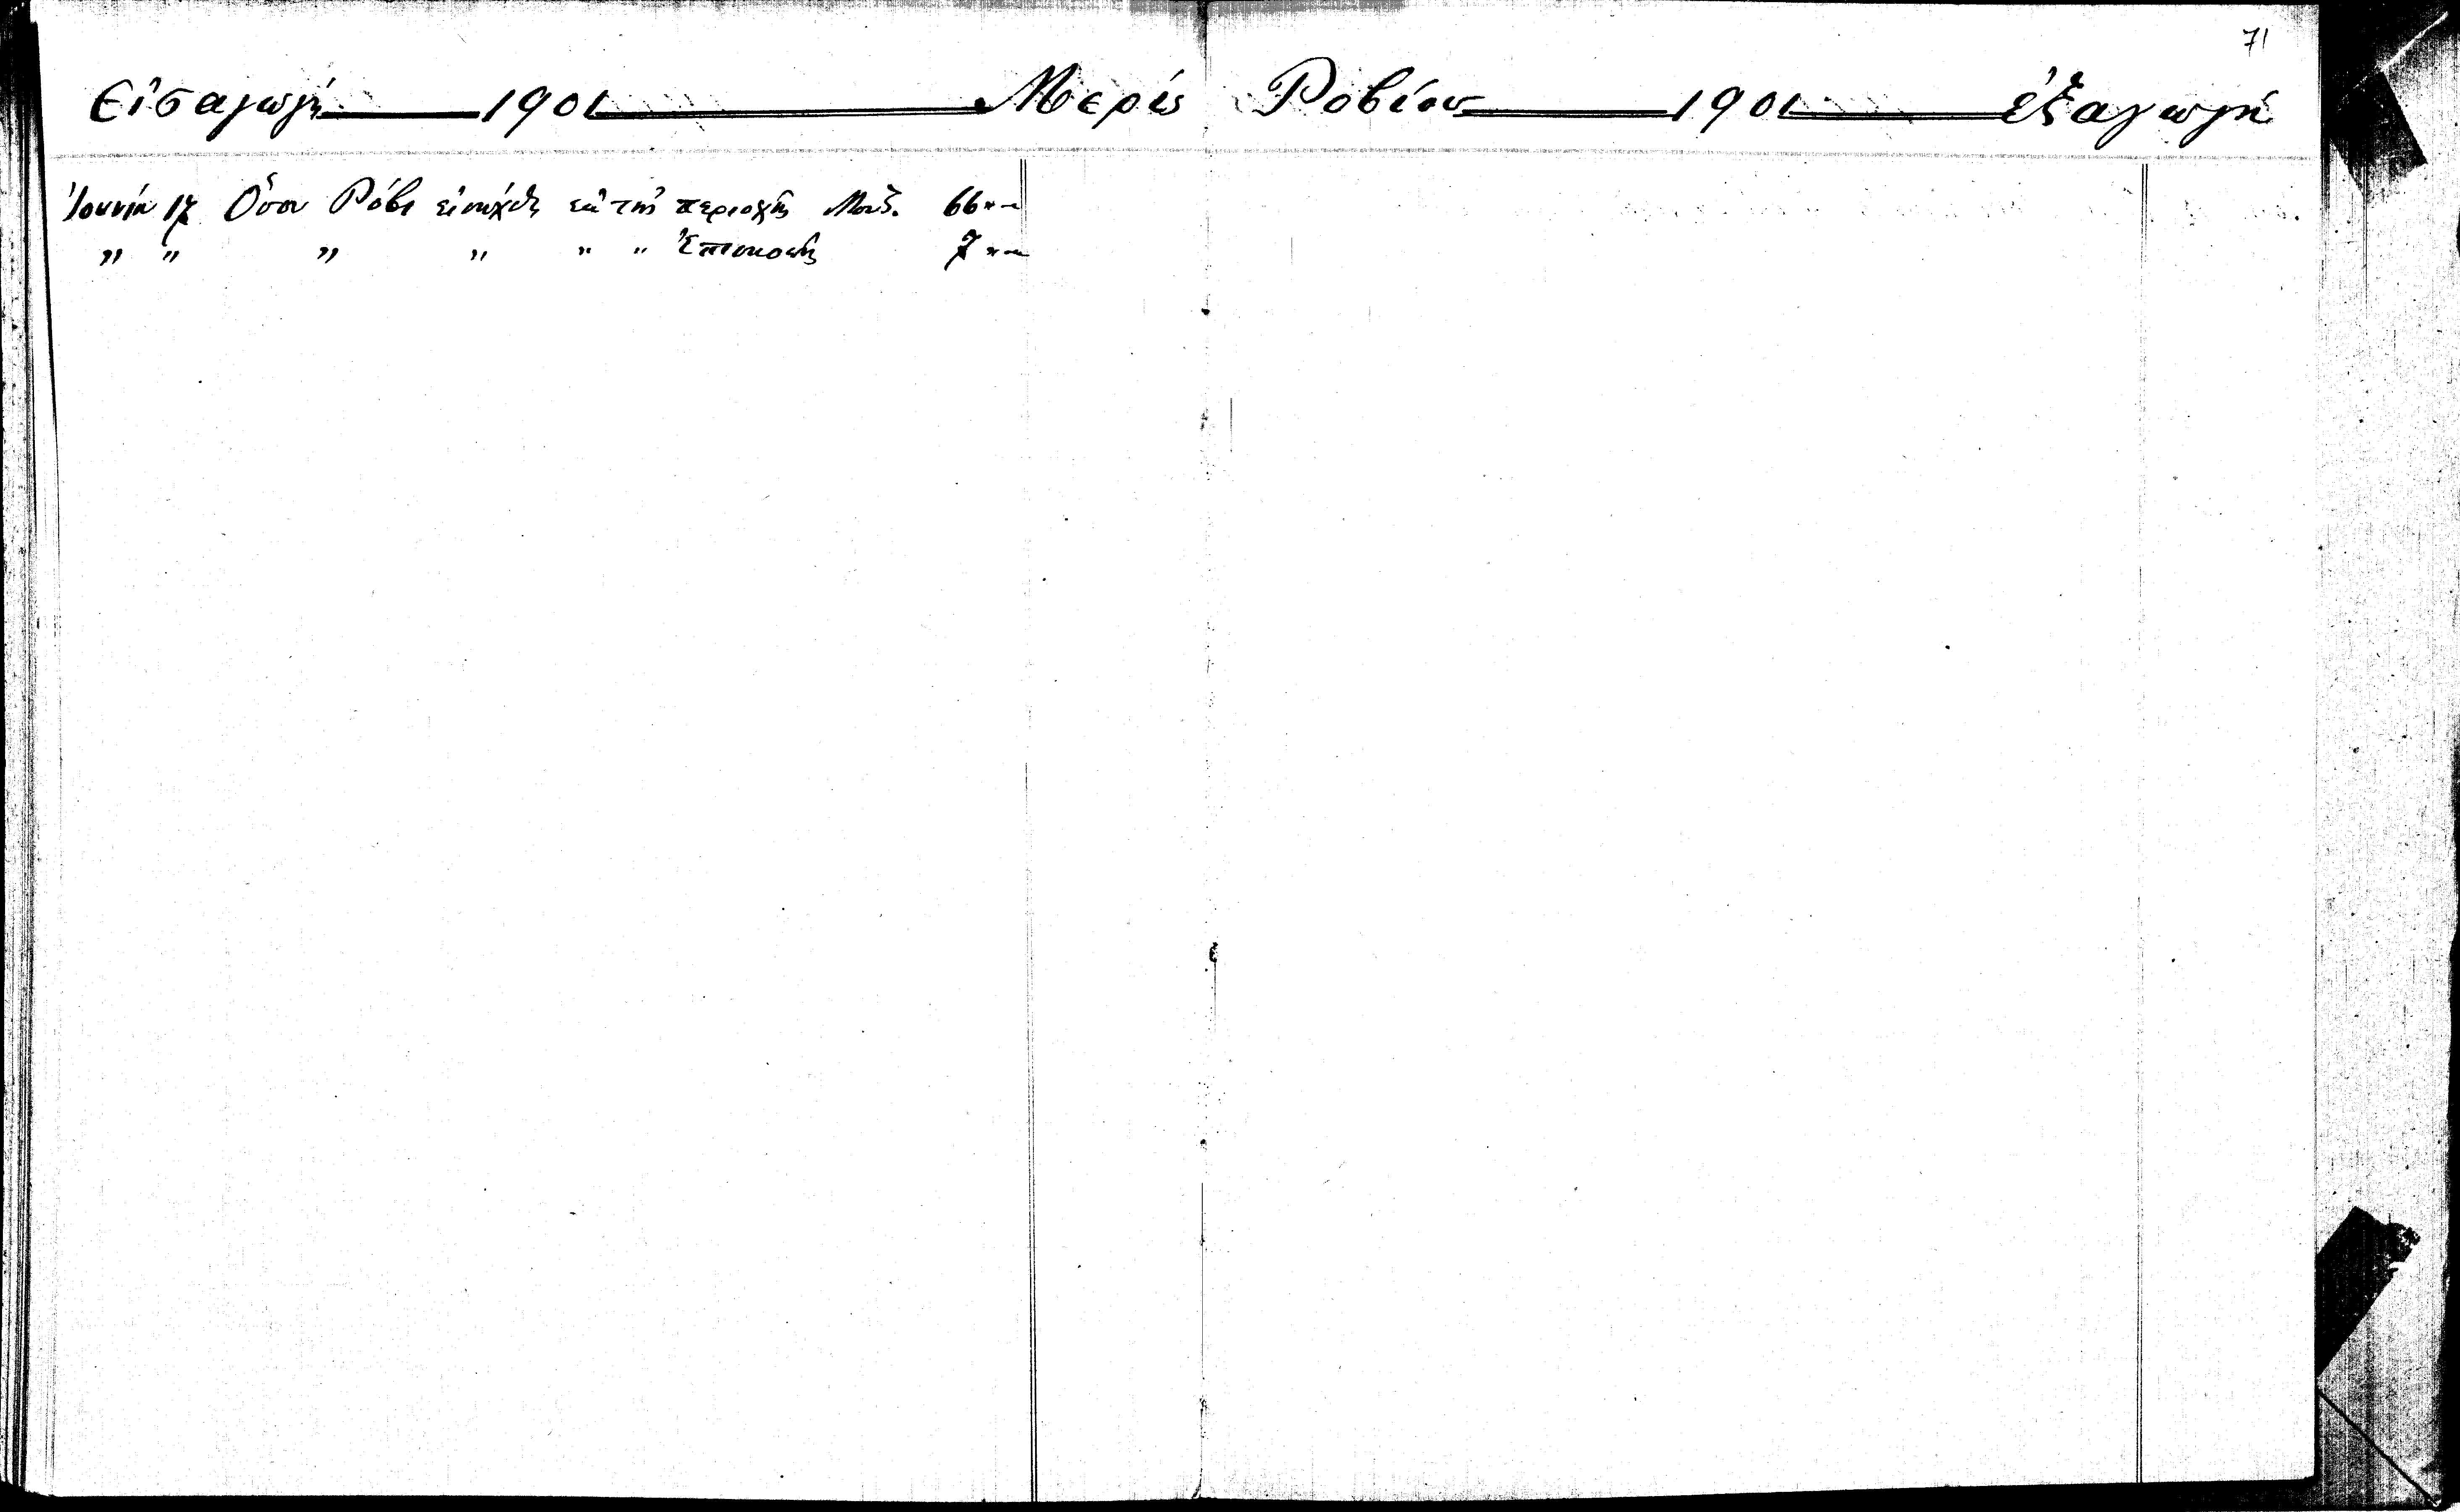 71
Εἰσαγωγή 1901 Μερὶς Ροβίου 1901 ἐξαγωγή
Ἰουνίου 17 Ὅσον Ρόβι εἰσήχθη ἐκ τῆς περιοχῆς Μουζ. 66 " "
" " " " " " Ἐπισκοπῆς 7 " "